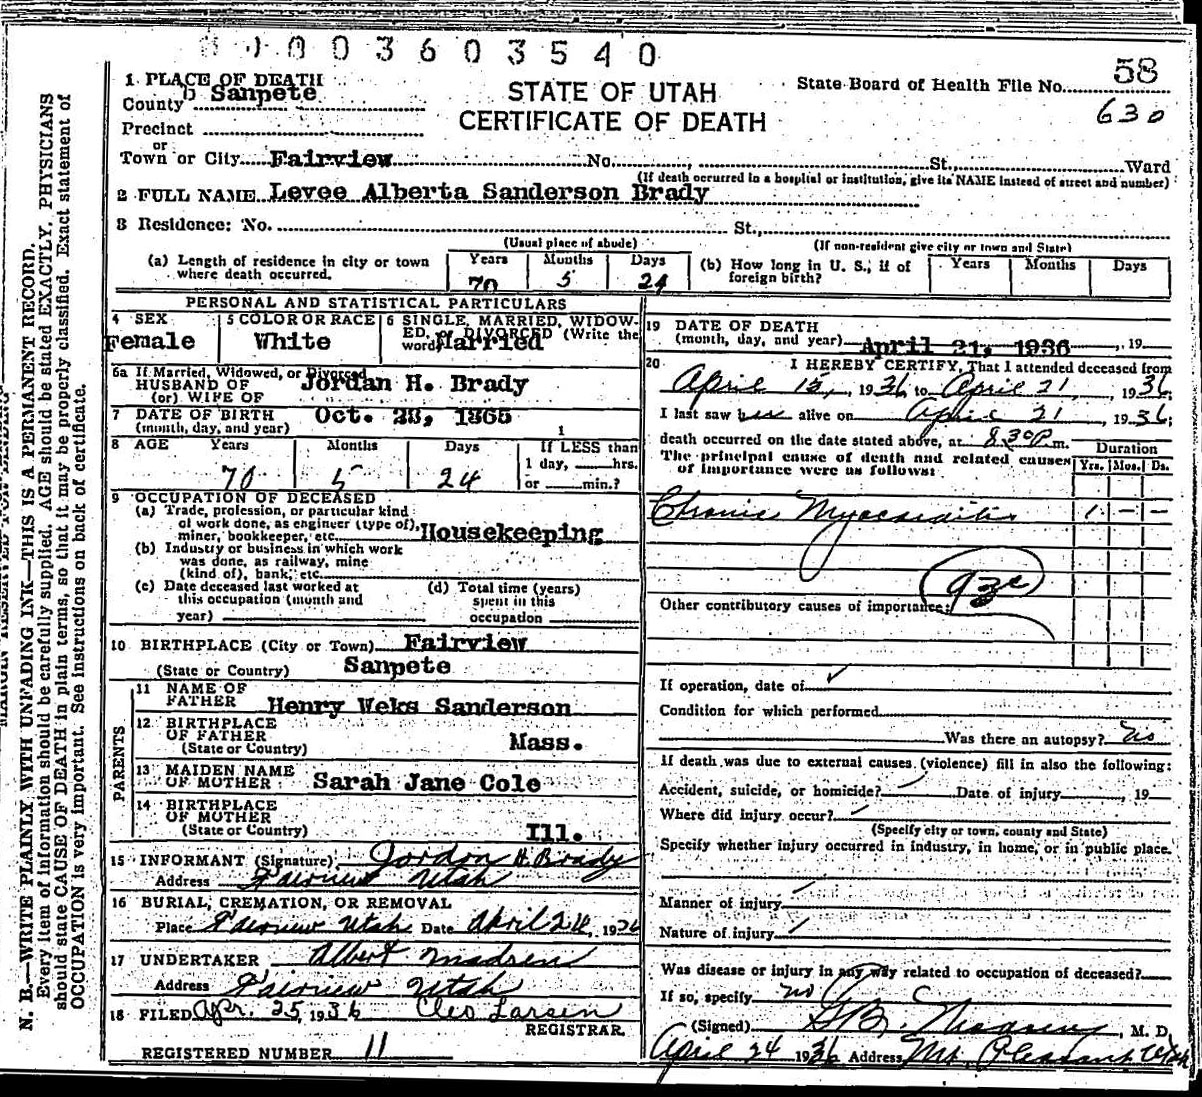 0003603540
1 PLACE OF DEATH
County Sanpete
STATE OF UTAH
CERTIFICATE OF DEATH
State Board of Health File No. 58
630
Precinct
or
Town or City Fairview No. , St. Ward
(If death occurred in a hospital or institution, give its NAME instead of street and number)
2 FULL NAME Levee Alberta Sanderson Brady
3 Residence: No. St.,
(Usual place of abode) (If non-resident give city or town and State)
(a) Length of residence in city or town where death occurred. Years 70 Months 5 Days 24
(b) How long in U. S., if of foreign birth? Years Months Days
PERSONAL AND STATISTICAL PARTICULARS
4 SEX Female
5 COLOR OR RACE White
6 SINGLE, MARRIED, WIDOWED, or DIVORCED (Write the word) Married
6a If Married, Widowed, or Divorced
HUSBAND OF
(or) WIFE OF Jordan H. Brady
7 DATE OF BIRTH
(month, day, and year) Oct. 28, 1865 1
8 AGE Years 70 Months 5 Days 24
If LESS than
1 day, hrs.
or min.?
9 OCCUPATION OF DECEASED
(a) Trade, profession, or particular kind
of work done, as engineer (type of),
miner, bookkeeper, etc. Housekeeping
(b) Industry or business in which work
was done, as railway, mine
(kind of), bank, etc.
(c) Date deceased last worked at
this occupation (month and
year)
(d) Total time (years)
spent in this
occupation
10 BIRTHPLACE (City or Town) Fairview
(State or Country) Sanpete
PARENTS
11 NAME OF
FATHER Henry Weks Sanderson
12 BIRTHPLACE
OF FATHER
(State or Country) Mass.
13 MAIDEN NAME
OF MOTHER Sarah Jane Cole
14 BIRTHPLACE
OF MOTHER
(State or Country) Ill.
15 INFORMANT (Signature) Jordon H. Brady
Address Fairview Utah
16 BURIAL, CREMATION, OR REMOVAL
Place Fairview Utah Date April 24, 1936
17 UNDERTAKER Albert Madsen
Address Fairview Utah
18 FILED Apr. 25, 1936 Cleo Larsen
REGISTRAR.
REGISTERED NUMBER 11
19 DATE OF DEATH
(month, day, and year) April 21, 1936 , 19
20 I HEREBY CERTIFY, That I attended deceased from
April 15, 1936 to April 21, 1936;
I last saw her alive on April 21, 1936;
death occurred on the date stated above, at 8 30 P m.
The principal cause of death and related causes
of importance were as follows:
Duration
Yrs. Mos. Ds.
Chronic Myocarditis 1 — —
93c
Other contributory causes of importance:
If operation, date of
Condition for which performed
Was there an autopsy? No
If death was due to external causes (violence) fill in also the following:
Accident, suicide, or homicide? Date of injury , 19
Where did injury occur?
(Specify city or town, county and State)
Specify whether injury occurred in industry, in home, or in public place.
Manner of injury
Nature of injury
Was disease or injury in any way related to occupation of deceased?
If so, specify no
(Signed) , M. D.
April 24 1936 Address Mt. Pleasant Utah
N. B.—WRITE PLAINLY, WITH UNFADING INK—THIS IS A PERMANENT RECORD.
Every item of information should be carefully supplied. AGE should be stated EXACTLY. PHYSICIANS
should state CAUSE OF DEATH in plain terms, so that it may be properly classified. Exact statement of
OCCUPATION is very important. See instructions on back of certificate.
MARGIN RESERVED FOR BINDING